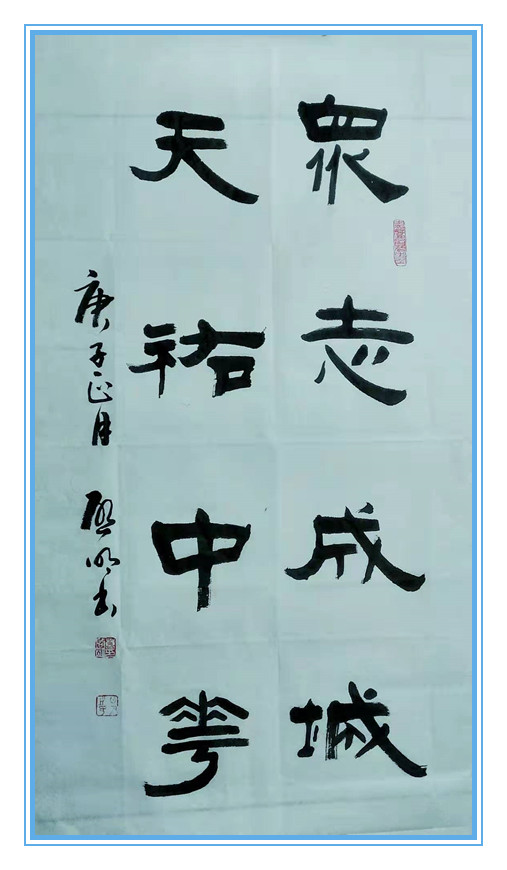 眾志成城
天祐中華
庚子正月 啟明書